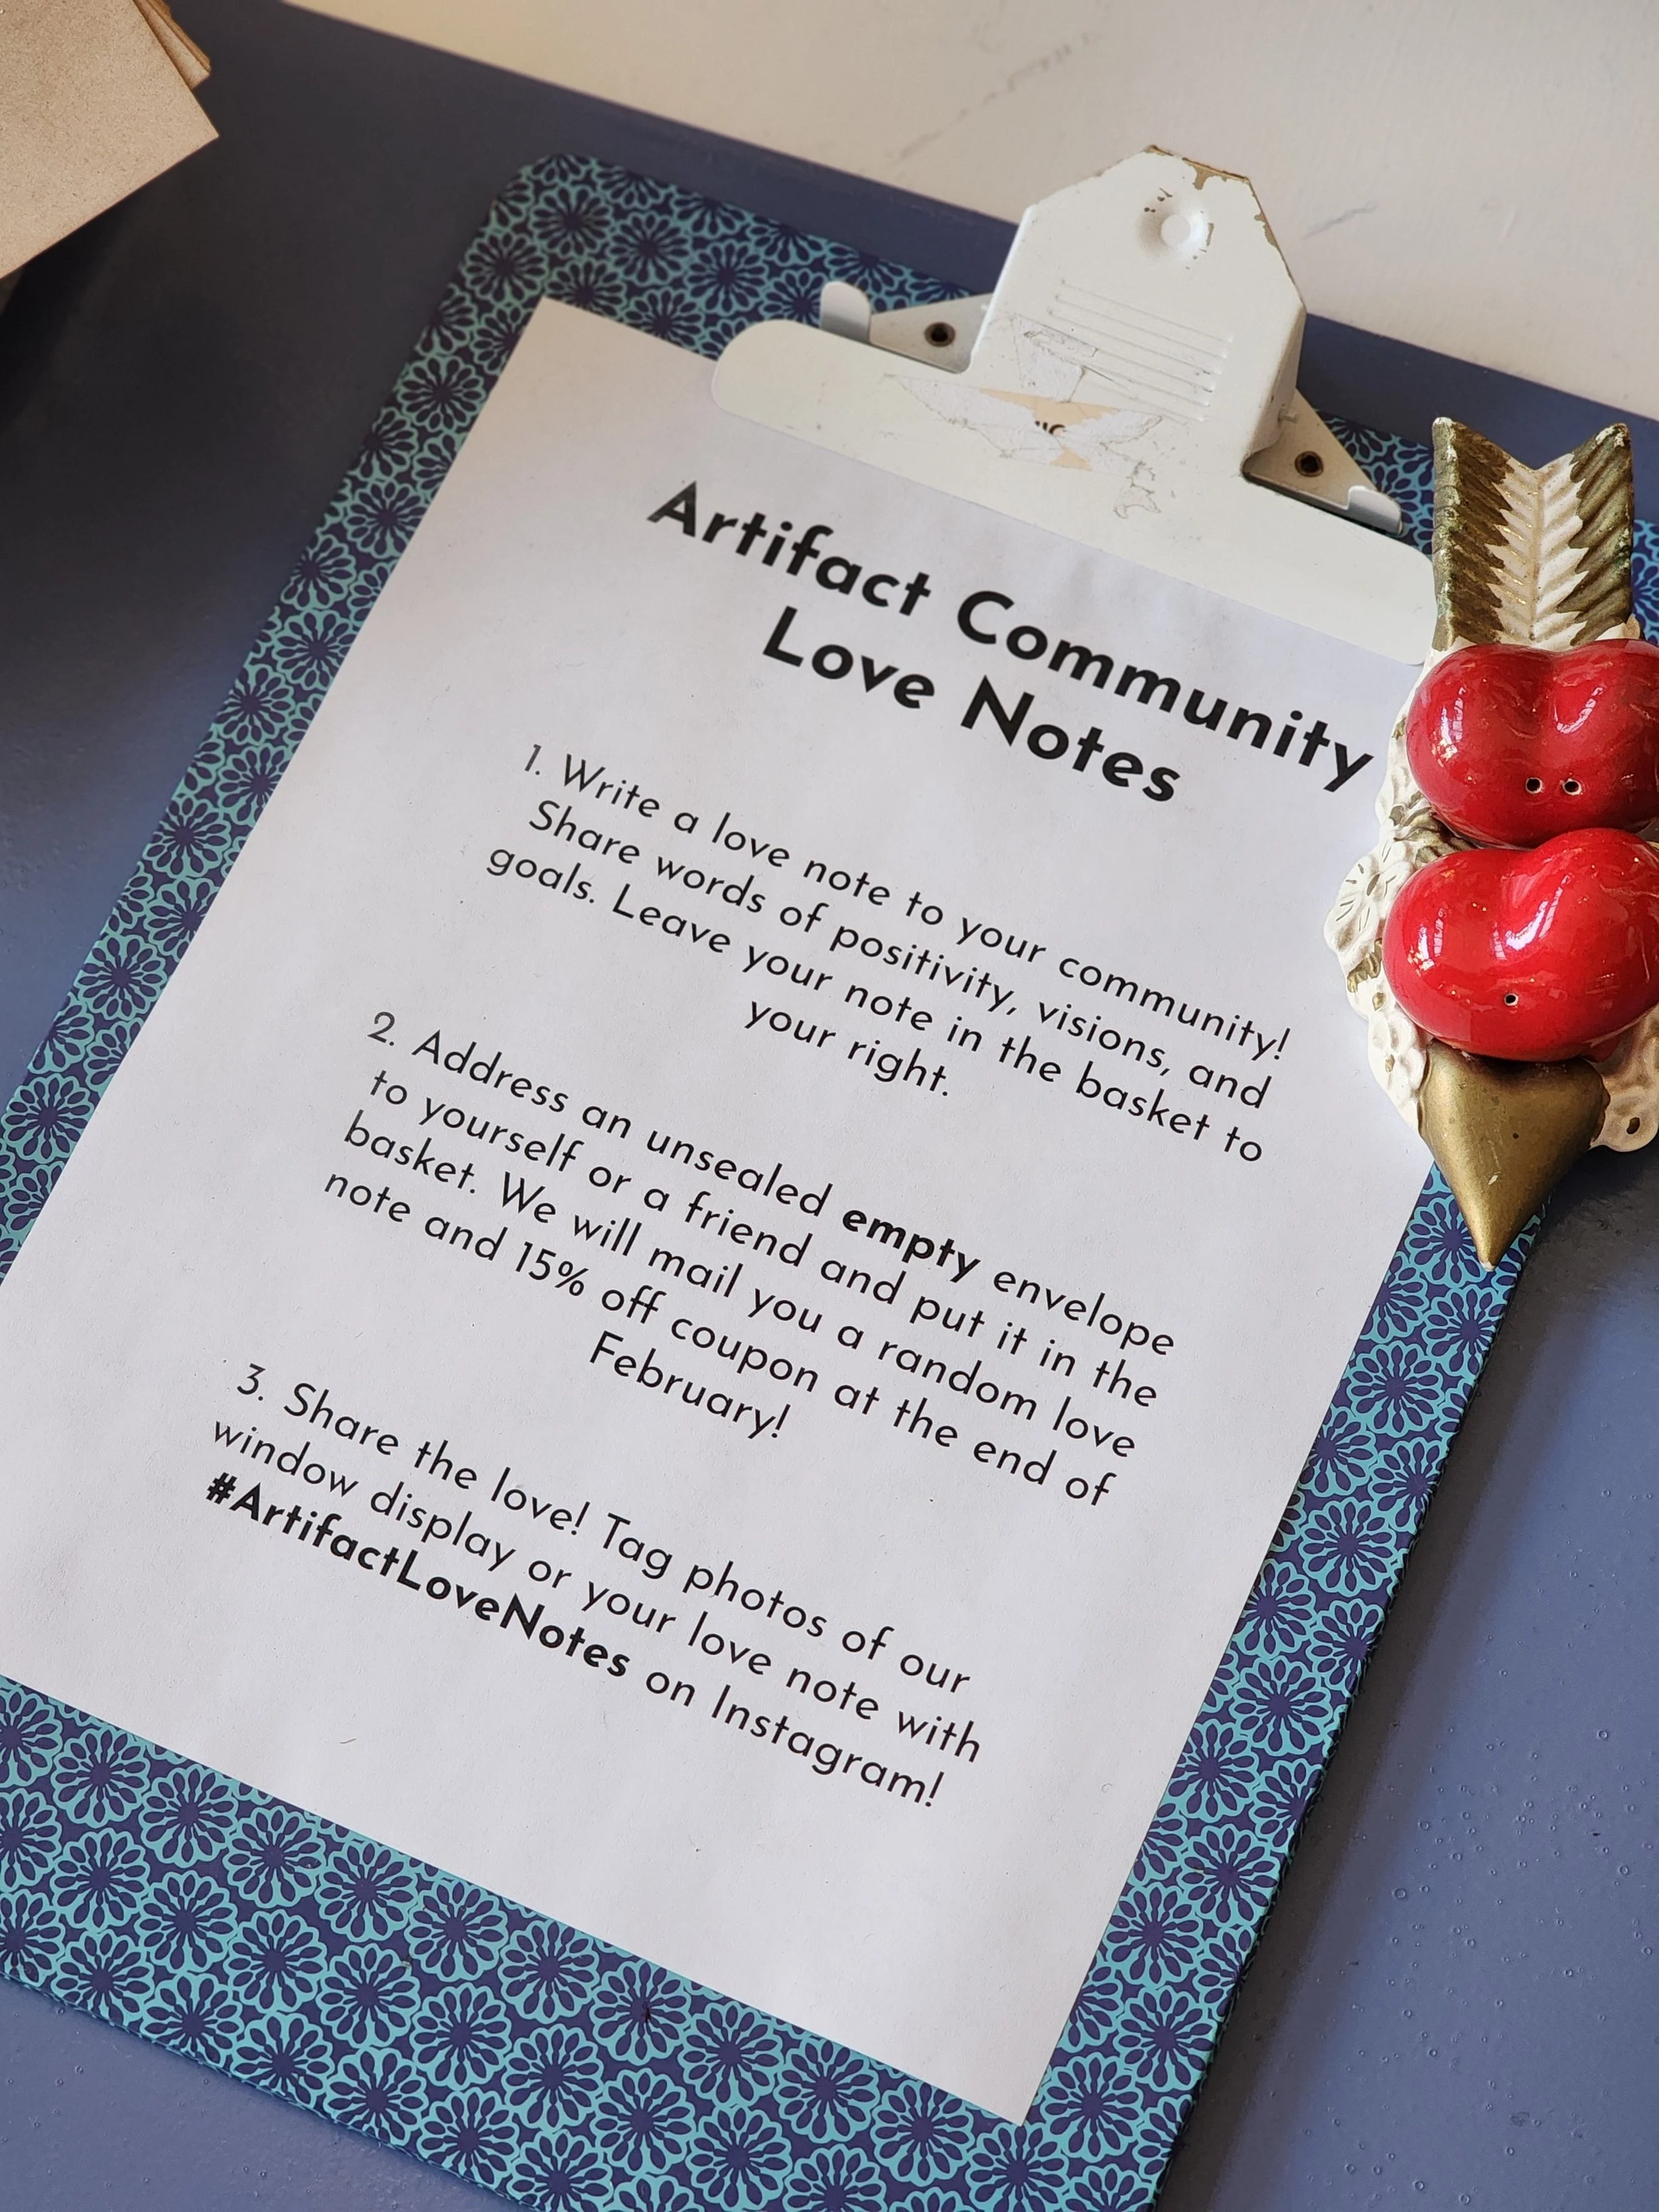 Artifact Community
Love Notes
1. Write a love note to your community!
Share words of positivity, visions, and
goals. Leave your note in the basket to
your right.
2. Address an unsealed empty envelope
to yourself or a friend and put it in the
basket. We will mail you a random love
note and 15% off coupon at the end of
February!
3. Share the love! Tag photos of our
window display or your love note with
#ArtifactLoveNotes on Instagram!